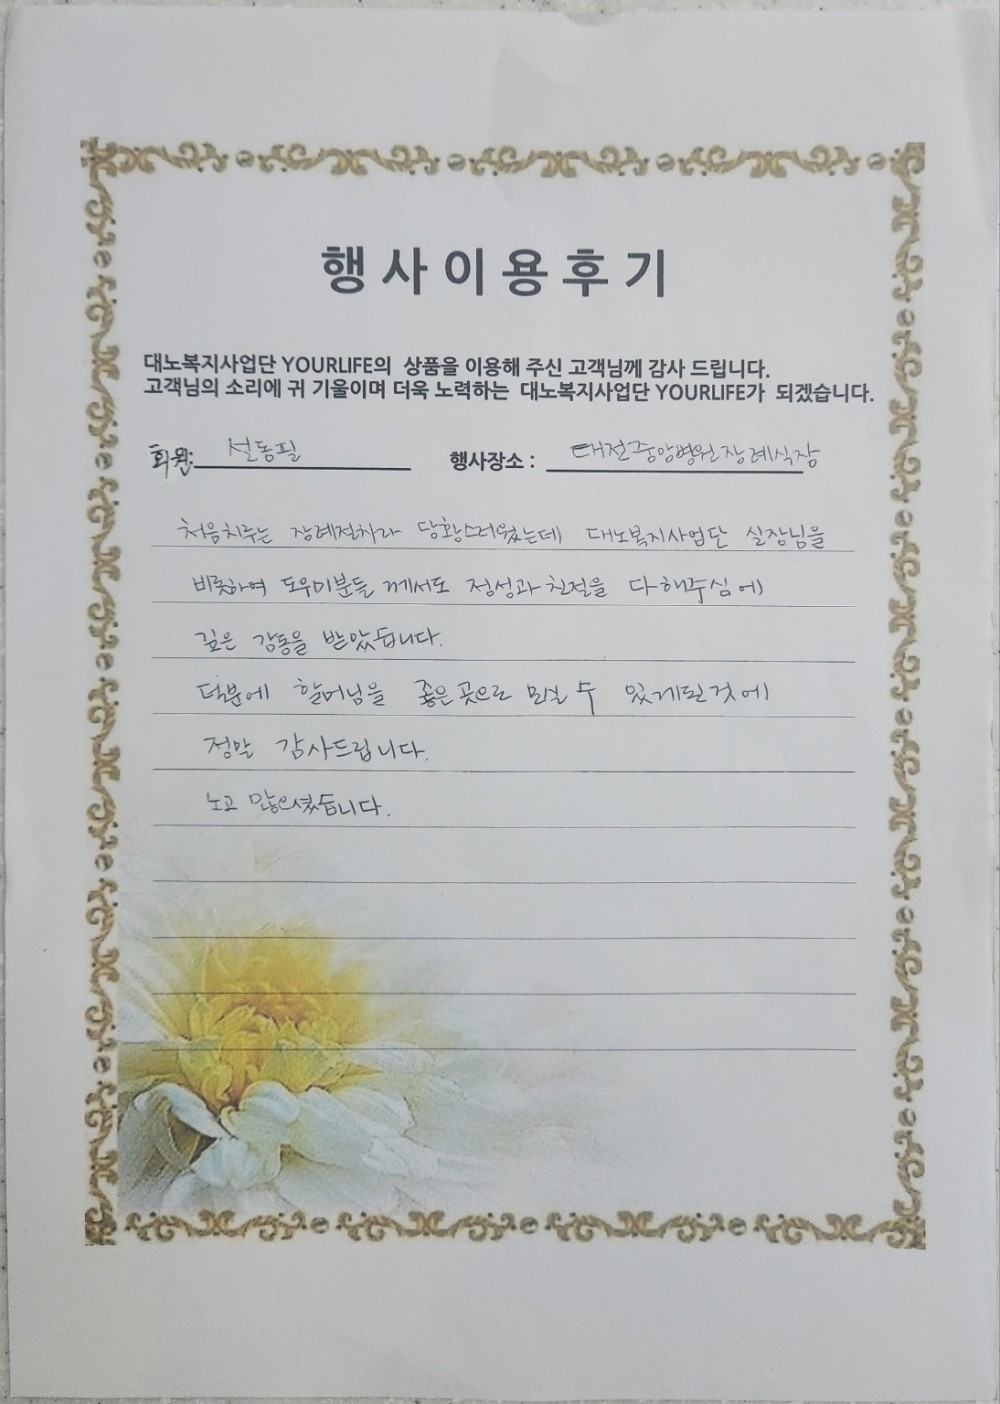 행사이용후기
대노복지사업단 YOURLIFE의 상품을 이용해 주신 고객님께 감사 드립니다.
고객님의 소리에 귀 기울이며 더욱 노력하는 대노복지사업단 YOURLIFE가 되겠습니다.
회원: 설동필 행사장소 : 대전중앙병원장례식장
처음치루는 장례절차라 당황스러웠는데 대노복지사업단 실장님을
비롯하여 도우미분들 께서도 정성과 친절을 다해주심에
깊은 감동을 받았습니다.
덕분에 할머님을 좋은 곳으로 모실 수 있게된것에
정말 감사드립니다.
노고 많으셨습니다.